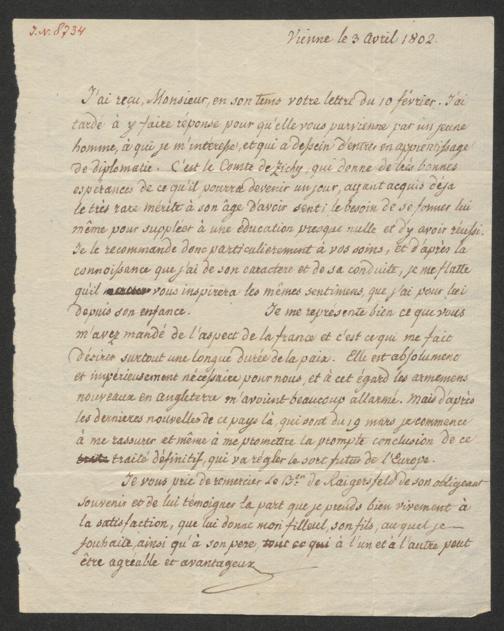 J.N. 8734
Vienne le 3 Avril 1802.
J'ai reçu, Monsieur, en son tems votre lettre du 10 février. J'ai
tardé à y faire réponse pour qu'elle vous parvienne par un jeune
homme, à qui je m'intéresse, et qui a dessein d'entrer en apprentissage
de diplomatie. C'est le Comte de Zichy, qui donne de très bonnes
espérances de ce qu'il pourra devenir un jour, ayant acquis déja
le très rare mérite à son age d'avoir senti le besoin de se former lui
même pour suppléer à une éducation presque nulle et d'y avoir réussi.
Je le recommande donc particulièrement à vos soins, et d'après la
connoissance que j'ai de son caractere et de sa conduite, je me flatte
qu'il vous inspirera les mêmes sentimens, que j'ai pour lui
depuis son enfance. Je me représente bien ce que vous
m'avez mandé de l'aspect de la france et c'est ce qui me fait
désirer surtout une longue durée de la paix. Elle est absolument
et impérieusement nécessaire pour nous, et à cet égard les armemens
nouveaux en Angleterre m'avoient beaucoup allarmé. Mais d'après
les dernieres nouvelles de ce pays là, qui sont du 19 mars, je commence
à me rassurer et même à me promettre la prompte conclusion de ce
traité définitif, qui va régler le sort futur de l'Europe.
Je vous prie de remercier le B.on de Raigersfeld de son obligeant
souvenir et de lui témoigner la part que je prends bien vivement à
la satisfaction, que lui donne mon filleul, son fils, auquel je
souhaite, ainsi qu'à son pere, tout ce qui à l'un et à l'autre peut
être agréable et avantageux